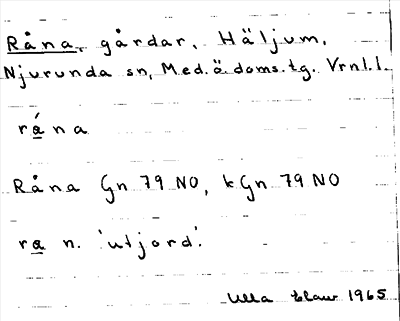 Råna, gårdar, Häljum,
Njurunda sn, Med.ö. doms.tg. Vrnl.l.
rá̲na
Råna Gn 79 NO, kGn 79 NO
ra̲ n. 'utjord'.
Ulla 1965